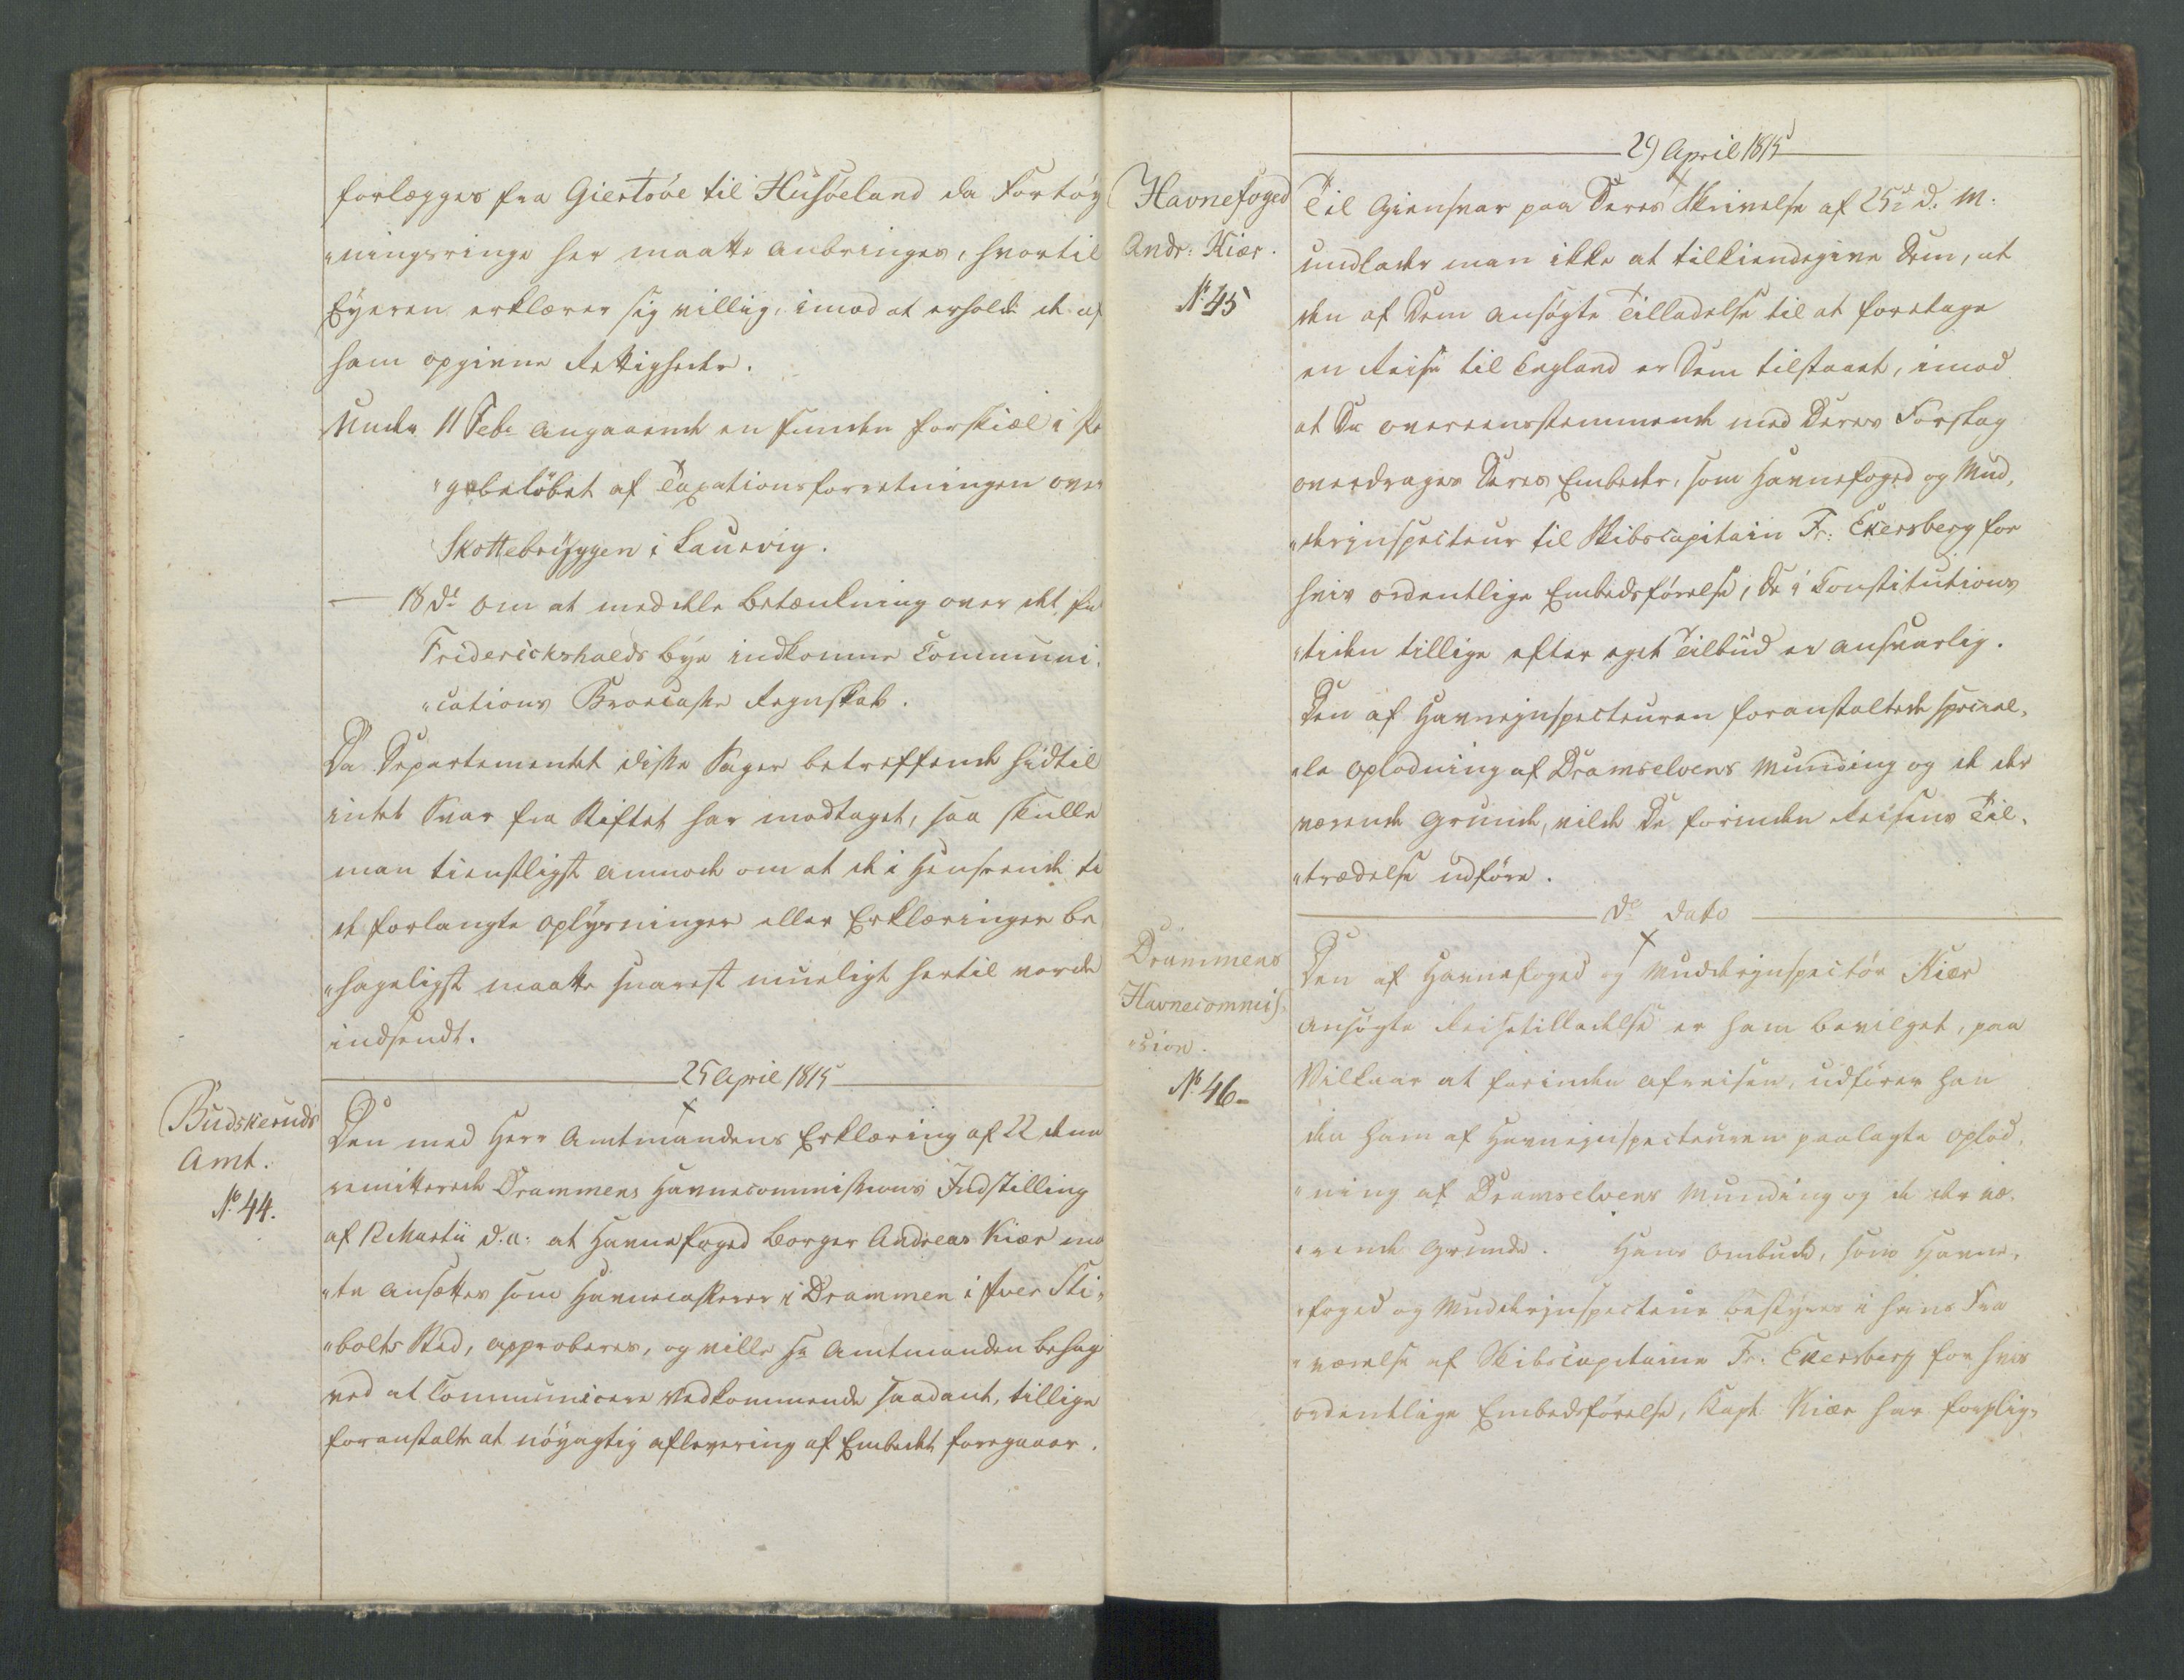 forlægges fra Giertsöe til Husöeland da Fortøy
"ningsringe her maatte anbringes, hvortil
Eyeren erklærer sig villig, imod at erholde de af
ham opgivne Rettigheder.
Under 11 Febr angaaende en funden forskiæl i Pe
"gebelöbet af Taxationsforretningen over
Skottebryggen i Laurvig.
— 18 do om at meddele Betænkning over det fra
Fridericks­halds Bye indkomne Communi-
"cations Broecasse Regnskab.
Da Departementet disse Sager betreffende hidtil
intet Svar fra Stiftet har modtaget, saa skulle
man tienstligst anmode om at de i Henseende til
de forlangte Oplysninger eller Erklæringer be
"hageligst maatte snarest mueligt hertil vorde
indsendt.
25 April 1815
Budskeruds
Amt.
No 44.
Den med Herr Amtmandens Erklæring af 22 denne
remitterede Drammens Havnecommissions Indstilling
af 12 Martii d.a: at Havnefoged Borger Andreas Kiær maa
"te ansættes som Havnecasserer i Drammen i Iver Sti-
"bolts Sted, approberes, og ville Hr Amtmanden behag
ved at communicere Vedkommende saadant, tillige
foranstalte at nöyagtig aflevering af Embedet foregaaer.
29 April 1815
Havnefoged
Andr: Kiær.
No 45
Til Giensvar paa Deres Skrivelse af 25de d. M.
undlader man ikke at tilkiendegive Dem, at
den af Dem ansögte Tilladelse til at foretage
en Reise til England er Dem tilstaaet, imod
at De overeensstemmende med Deres Forslag
overdrager Deres Embeder, som Havnefoged og Mud-
"derinspecteur til Skibscapitain Fr: Eckersberg for
hvis ordentlige Embedsförelse, De i Constitutions
"tiden tillige efter eget Tilbud er ansvarlig.
Den af Havneinspecteuren foranstaltede speciel-
"le Oplodning af Dramselvens Munding og de der
værende Grunde, vilde De forinden Reisens Til-
"trædelse udföre.
do dato
Drammens
Havnecommis-
"sion.
No 46-
Den af Havnefoged og Mudderinspectör Kiær
ansögte Reisetilladelse er ham bevilget, paa
Vilkaar at forinden Afreisen, udförer han
den ham af Havneinspecteuren paalagte Oplod-
"ning af Dramselvens Munding og de der væ-
"rende Grunde. Hans Ombude, som Havne-
"foged og Mudderinspecteur bestyres i hans Fra
"værelse af Skibscapitaine Fr. Eckersberg for hvis
ordentlige Embedsförelse, Capt. Kiær har forplig-